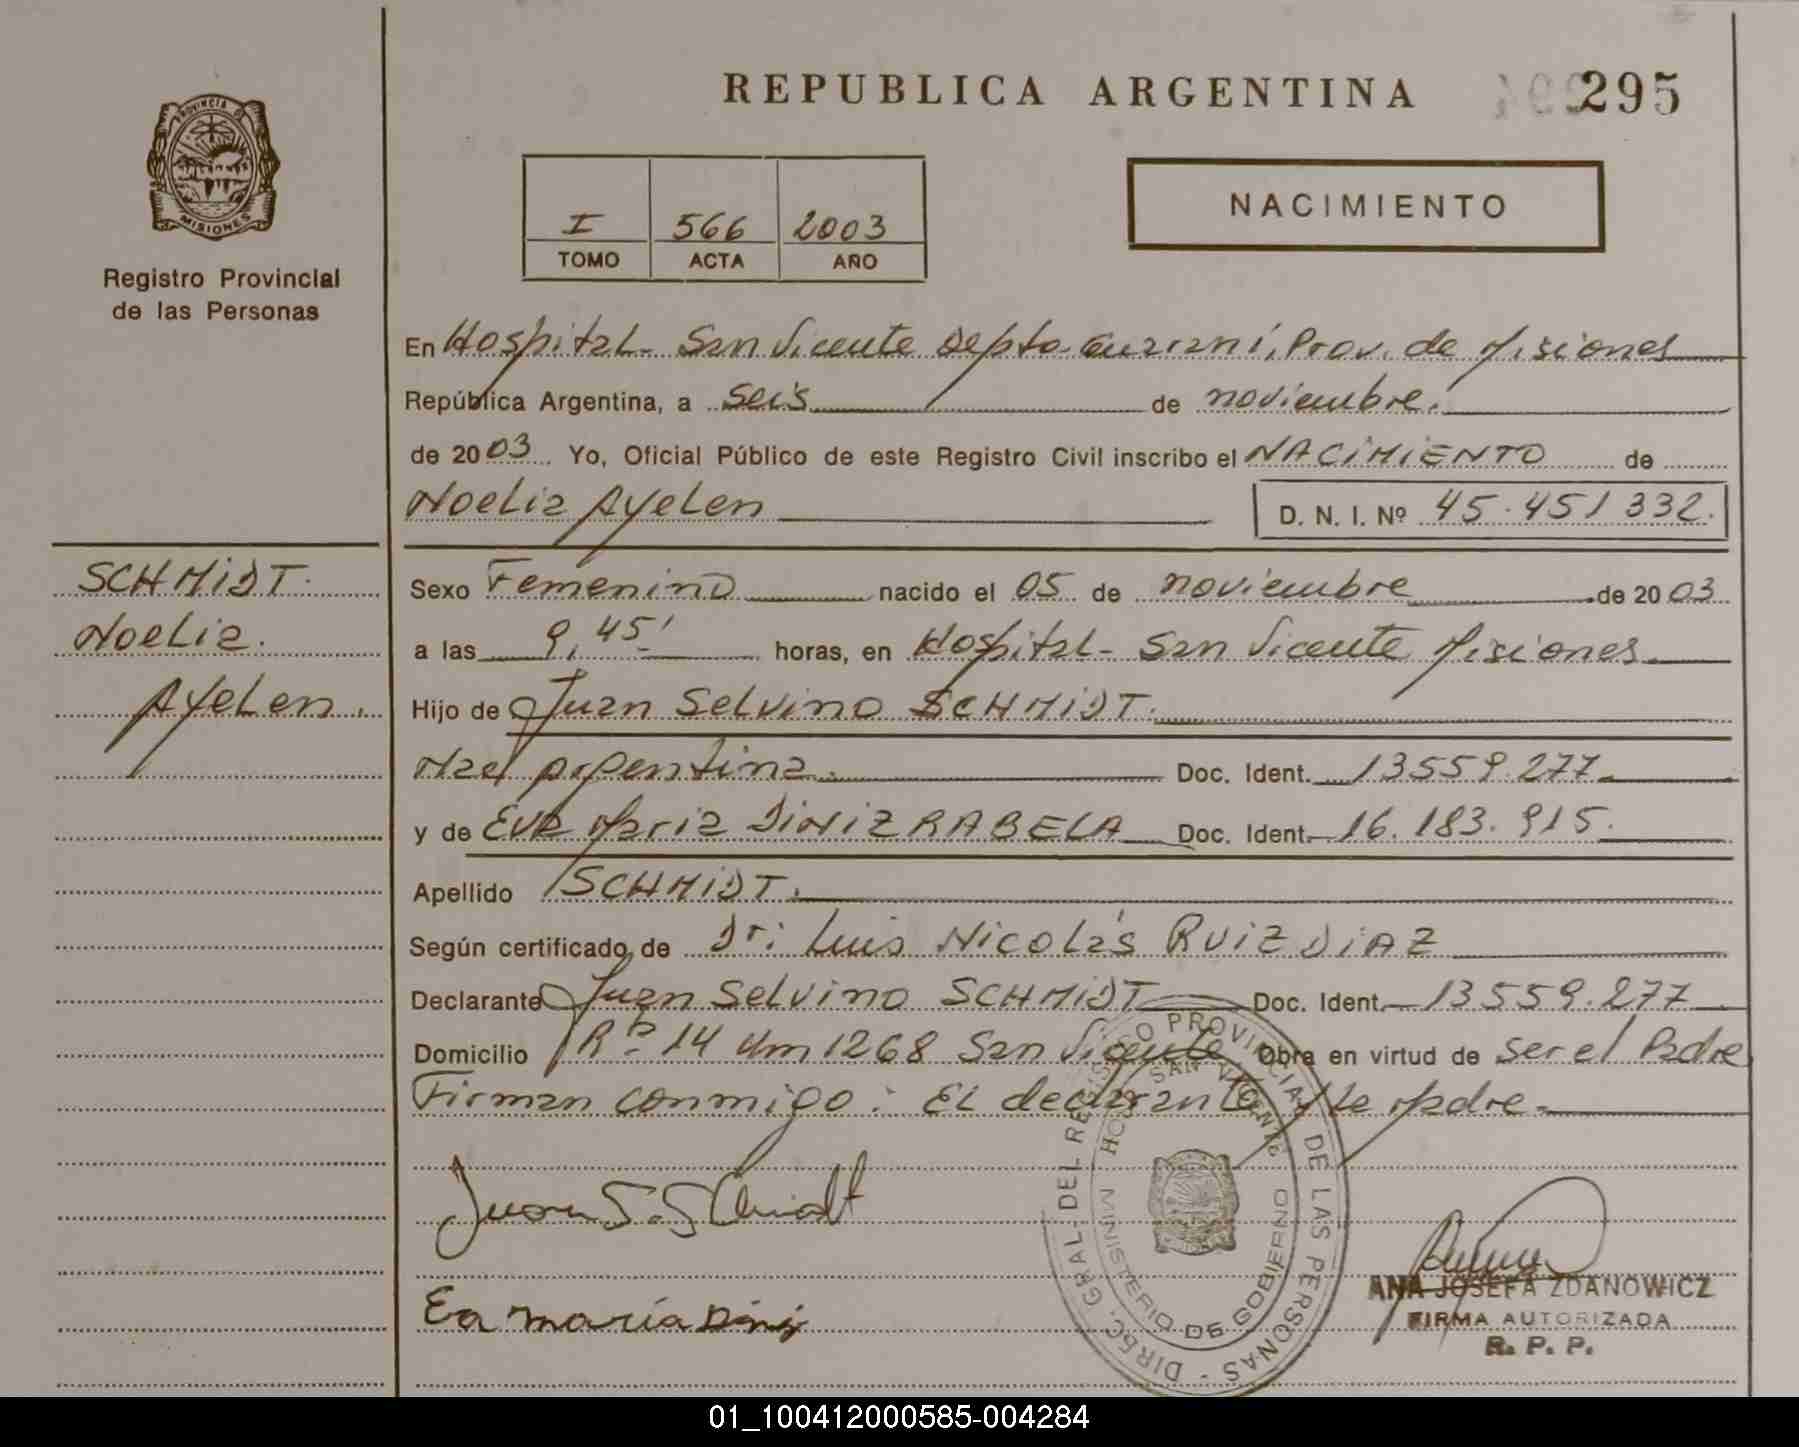 REPUBLICA ARGENTINA
295
PROVINCIA D MISIONES
Registro Provincial
de las Personas
I 566 2003
TOMO ACTA AÑO
NACIMIENTO
En Hospital- San Vicente Depto Guarani, Prov. de Misiones
República Argentina, a seis de noviembre.
de 2003 Yo, Oficial Público de este Registro Civil inscribo el NACIMIENTO de
Noelia Ayelen D. N. I. Nº 45.451 332.
SCHMIDT.
Noelia.
Ayelen.
Sexo Femenino nacido el 05 de noviembre de 2003
a las 9,45' horas, en Hospital- San Vicente Misiones.
Hijo de Juan Selvino SCHMIDT.
Nac. Argentina. Doc. Ident. 13559.277
y de Eva Maria DINIZ RABELA Doc. Ident. 16.183.915.
Apellido SCHMIDT.
Según certificado de Dr: Luis Nicolás RUIZ DIAZ
Declarante Juan Selvino SCHMIDT Doc. Ident. 13559.277
Domicilio Rta 14 Km 1268 San Vicente Obra en virtud de ser el Padre
Firman conmigo: El declarante y la Madre.
DIREC. GRAL. DEL REGISTRO PROVINCIAL DE LAS PERSONAS -
HOSP. SAN VICENTE
MINISTERIO DE GOBIERNO
Juan S. Schmidt
Ea maria Diniz
ANA JOSEFA ZDANOWICZ
FIRMA AUTORIZADA
R. P. P.
01_100412000585-004284